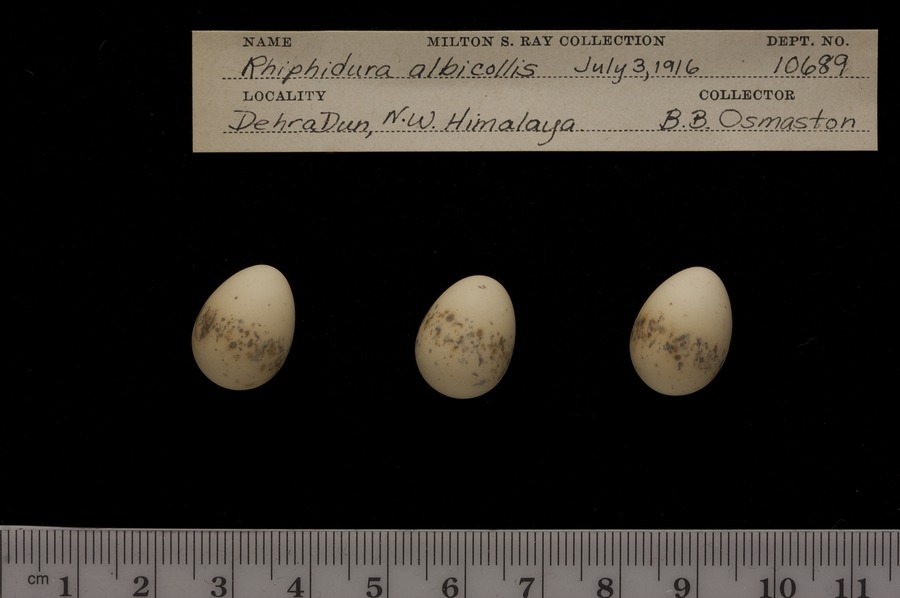 NAME MILTON S. RAY COLLECTION DEPT. NO.
Rhiphidura albicollis July 3, 1916 10689
LOCALITY COLLECTOR
Dehra Dun, N.W. Himalaya B.B. Osmaston
cm 1 2 3 4 5 6 7 8 9 10 11